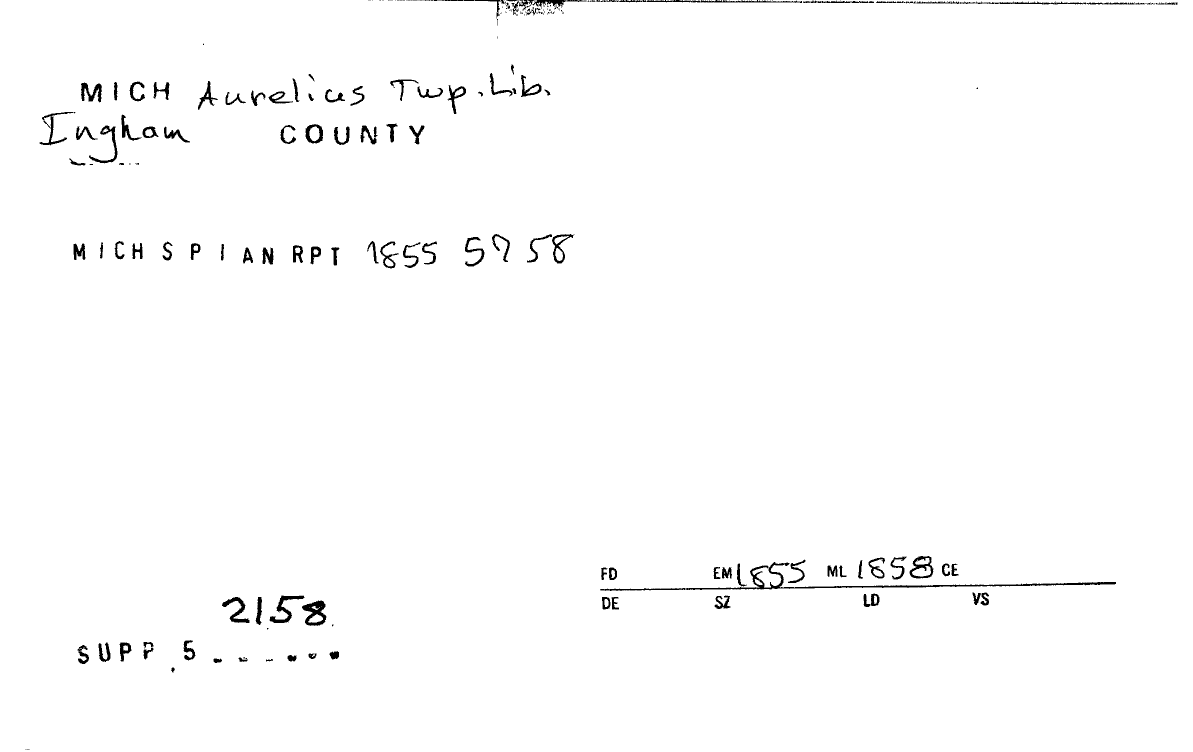 MICH Aurelius Twp. Lib.
Ingham COUNTY
MICH S P I AN RPT 1855 57 58
FD EM 1855 ML 1858 CE
DE SZ LD VS
2158
SUPP. 5